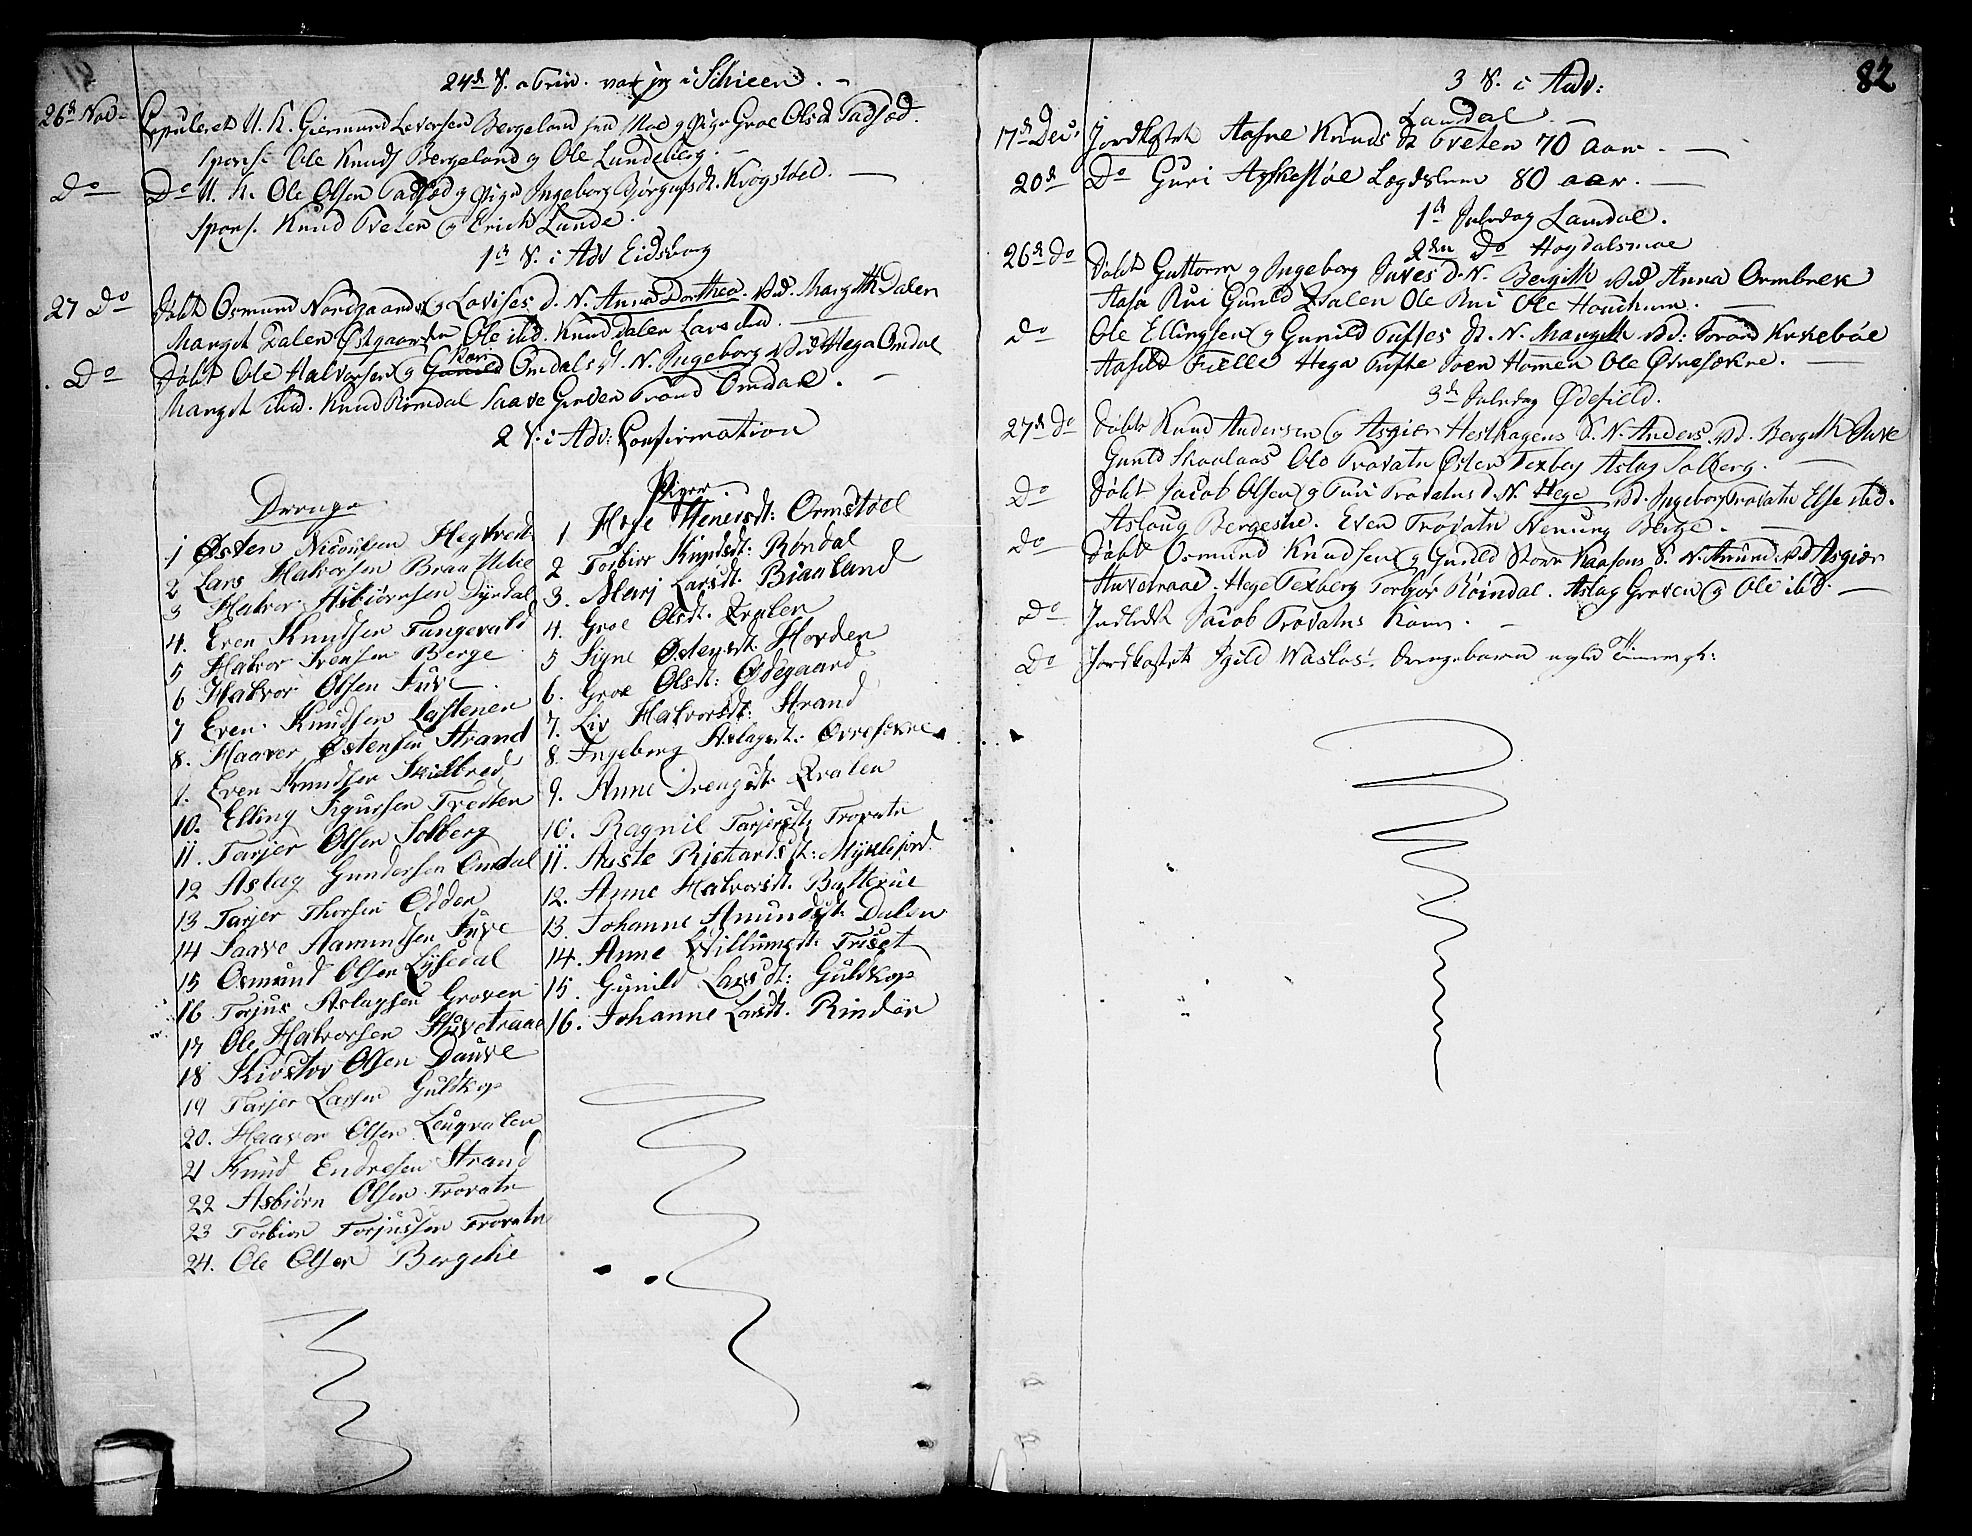 24de S. a Trin. var jeg i Schieen. -
26de Nov. Copuleret U. K. Giermund Leversen Bergeland sen Moe og Pige Groe Olsd. Tadsød.
spons. Ole Knuds. Bergeland og Ole Lundeberg. -
Do Do U. K. Ole Olsen Tadsød og Pige Ingeborg Bjørgufsd. Krogstoel. -
spons. Knud Tveten og Erick Lunde.
1ste S. i Adv Eidsborg
27 Do Døbt Osmund Nordgaards og Lovises d. N. Anna Dorthea. Vid. Margith Dalen
Margit Dalen Østgaarden Ole ibid. Knud Dalen Lars ibid.
Do Døbt Ole Halvorsen og Gunild Kari Omdals d. N. Ingeborg Vid. Hega Omdal
Margit ibid. Knud Rømdal Saave Groven Trond Omdal. -
2 S. i Adv: Confirmation
Drenge
1 Østen Nicoulsen Hegtveit
2 Lars Halvorsen Braathelie
3 Halvor Asbiørnsen Dyrdal
4. Even Knudsen Tungevald
5 Halvor Svensen Berge
6 Halvor Olsen Juve
7 Even Knudsen Løstenen
8. Haaver Østensen Strand
9. Even Knudsen Skielbred
10. Elling Sigursen Tvedten
11. Tarjer Olsen Solberg
12 Aslag Gundersen Omdal
13 Tarjer Thorsen Odden
14 Saave Aamundsen Juve
15 Osmund Olsen Lysedal
16 Torjus Aslagsen Groven
17 Ole Halvorsen Huvetraae
18 Kiøstov Olsen Dauve
19 Tarjer Larsen Guldkop
20. Haavor Olsen Leuqvalen
21 Knud Endresen Strand
22 Asbiørn Olsen Trovatn
23 Torbiør Torjussen Trovatn
24. Ole Olsen Bergelie
Piger
1 Hege Stenersdt: Ormstøel
2 Torbior Knudsdt: Røndal
3. Marj Larsdt. Biaaland
4. Groe Olsdt. Qvalen
5 Signe Østensdt. Horden
6. Groe Olsdt: Ødegaard
7. Liv Halvorsdt: Strand
8. Ingeborg Aslagsdt: Øvrefokne
9. Anne Drengsdt. Qvalen
10. Ragnil Tarjersdt. Trovatn
11. Aaste Rickardsdt: Myklefjord.
12. Anne Halvorsdt. Batterue
13. Johanne Amundsdt. Dalen
14. Anne Willumsdt. Triset
15. Gunild Larsdt: Guldkop
16. Johanne Larsdt. Rinden
82
3 S. i Adv:
Laudal. -
17de Dec. Jordkastet Aasne Knuds dt Tveten 70 Aar. -
20de Do Guri Aslestøe Lægdslem 80 aar. -
1ste Juledag Laudal.
2den Do Høydalsmoe
26de Do Døbt Guttorm og Ingeborg Juves d. N. Bergith Vid. Anna Ormbrek
Aase Rui Gunild Qvalen Ole Rui Ole Houchum. -
Do Ole Ellingsen og Gunild Tuftes dt. N. Margith Vid: Torand Kirkebøe
Aasild Fielle Hega Tufte Joen Homen Ole Øvrefokne. -
3de Juledag Ødefield.
27de Do Døbt Knud Andersen og Asgier Hesthagens S. N. Anders. Vid. Bergith Juve
Gunild Skaalaas Ole Trovatn Østen Texberg Aslag Solberg. -
Do Døbt Jacob Olsen og Turi Trovatns d. N. Hege Vid. Ingeborg Trovatn Else ibid.
Aslaug Bergelie. Even Trovatn Nenung Berge. -
Do Døbt Osmund Knudsen og Gunild Storekaasens S. N. Amund: Vid. Asgier
Huvetraae. Hege Texberg Torbjør Røindal. Aslag Groven og Ole ibid. -
Do Indledt Jacob Trovatns Kone. -
Do Jordkastet Igild Waslos. Drengebarn